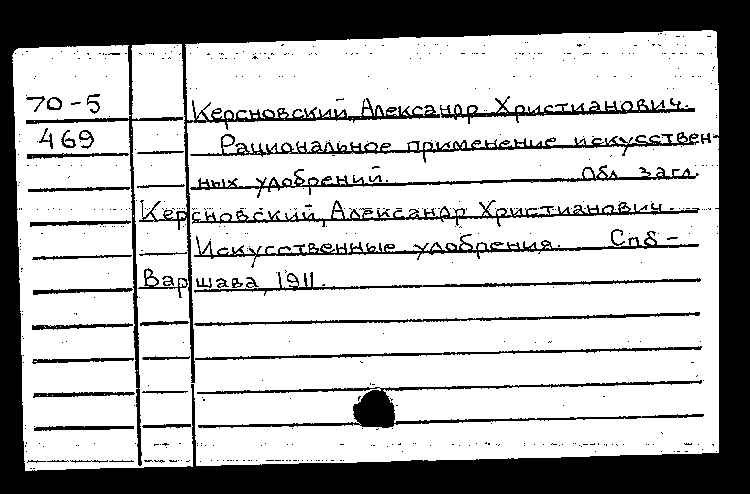 70-5 Керсновский, Александр Христианович.
469 Рациональное применение искусствен-
ных удобрений. Обл. загл.
Керсновский, Александр Христианович.
Искусственные удобрения. Спб -
Варшава, 1911.